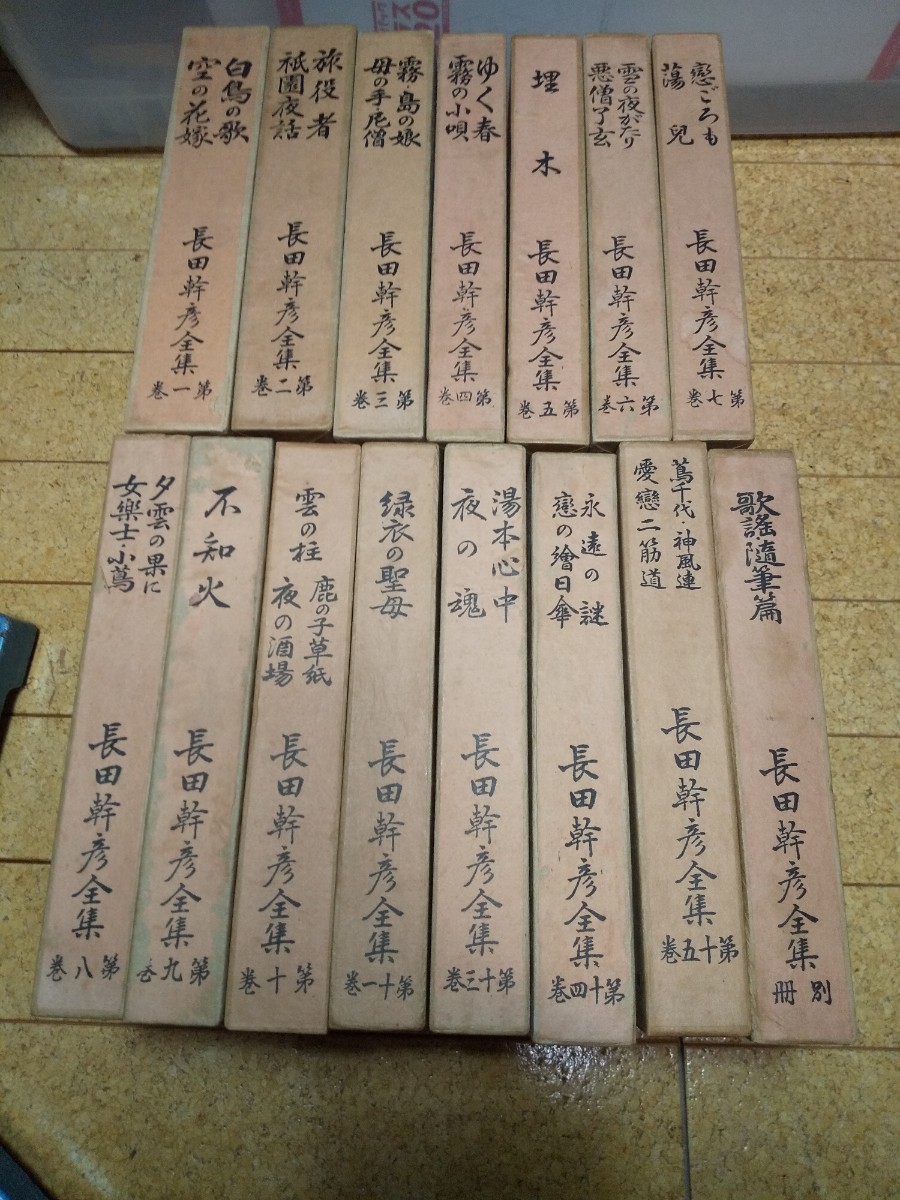 白鳥の歌
空の花嫁
長田幹彦全集
第一巻
旅役者
祇園夜話
長田幹彦全集
第二巻
霧・島の娘
母の手・尼僧
長田幹彦全集
第三巻
ゆく春
霧の小唄
長田幹彦全集
第四巻
埋木
長田幹彦全集
第五巻
雪の夜がたり
悪僧了玄
長田幹彦全集
第六巻
戀ごろも
蕩兒
長田幹彦全集
第七巻
夕雲の果に
女樂士・小蔦
長田幹彦全集
第八巻
不知火
長田幹彦全集
第九巻
雲の柱
鹿の子草紙
夜の酒場
長田幹彦全集
第十巻
緑衣の聖母
長田幹彦全集
第十一巻
湯本心中
夜の魂
長田幹彦全集
第十三巻
永遠の謎
戀の繪日傘
長田幹彦全集
第十四巻
蔦千代・神風連
愛戀二筋道
長田幹彦全集
第十五巻
歌謠隨筆篇
長田幹彦全集
別冊